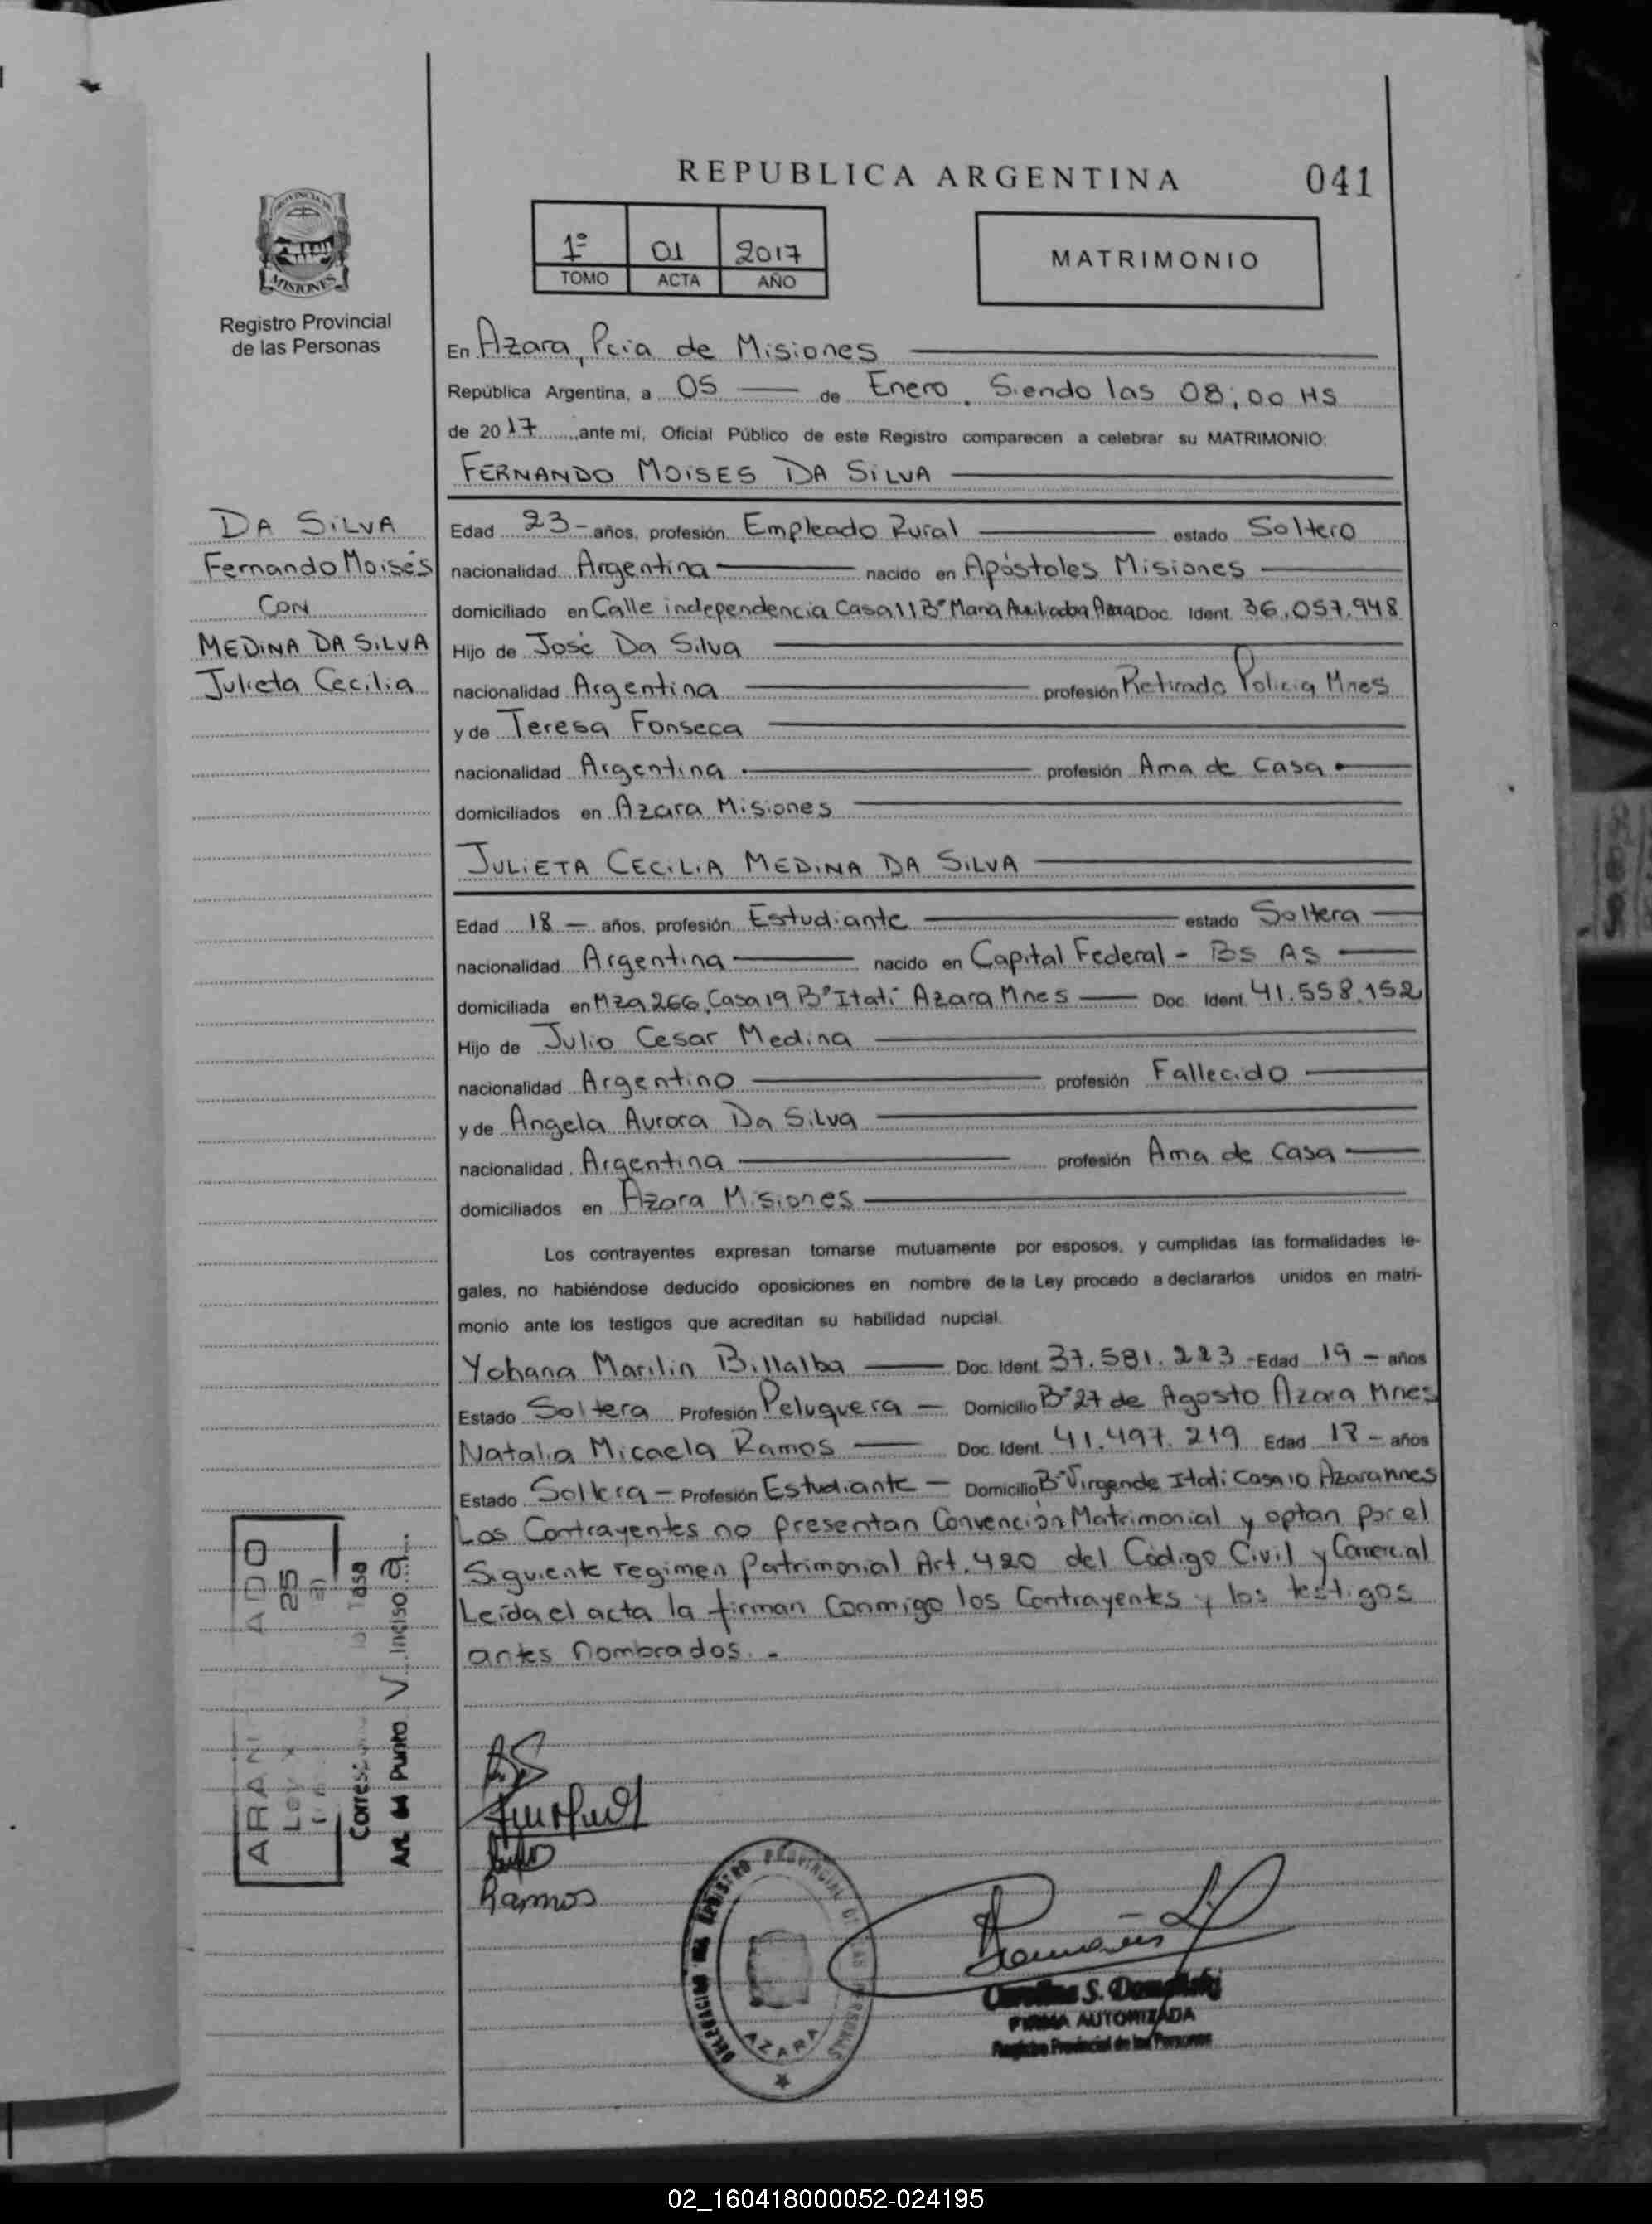 REPUBLICA ARGENTINA
041
PROVINCIA DE
MISIONES
Registro Provincial
de las Personas
1º 01 2017
TOMO ACTA AÑO
MATRIMONIO
En Azara, Pcia de Misiones
República Argentina, a 05 de Enero. Siendo las 08:00 HS
de 2017, ante mi, Oficial Público de este Registro comparecen a celebrar su MATRIMONIO:
FERNANDO MOISES DA SILVA
DA SILVA
Fernando Moisés
CON
MEDINA DA SILVA
Julieta Cecilia
Edad 23 - años, profesión Empleado Rural estado Soltero
nacionalidad Argentina nacido en Apóstoles Misiones
domiciliado en Calle independencia Casa 11 Bº Maria Doc. Ident. 36.057.948
Hijo de José Da Silva
nacionalidad Argentina profesión Retirado Policia Mnes
y de Teresa Fonseca
nacionalidad Argentina profesión Ama de Casa
domiciliados en Azara Misiones
JULIETA CECILIA MEDINA DA SILVA
Edad 18 - años, profesión Estudiante estado Soltera
nacionalidad Argentina nacido en Capital Federal - BS AS
domiciliada en Mza 266, Casa 19 Bº Itatí Azara Mnes Doc. Ident. 41.558.152
Hijo de Julio Cesar Medina
nacionalidad Argentino profesión Fallecido
y de Angela Aurora Da Silva
nacionalidad Argentina profesión Ama de Casa
domiciliados en Azara Misiones
Los contrayentes expresan tomarse mutuamente por esposos, y cumplidas las formalidades le-
gales, no habiéndose deducido oposiciones en nombre de la Ley procedo a declararlos unidos en matri-
monio ante los testigos que acreditan su habilidad nupcial.
Yohana Marilin Billalba Doc. Ident. 37.581.223 - Edad 19 - años
Estado Soltera Profesión Peluquera - Domicilio Bº 27 de Agosto Azara Mnes
Natalia Micaela Ramos Doc. Ident. 41.497.219 Edad - años
Estado Soltera - Profesión Estudiante - Domicilio Bº Virgen de Itati Casa 10 Azara Mnes
Los Contrayentes no presentan Convención Matrimonial y optan por el
Siguiente regimen Patrimonial Art. 420 del Código Civil y Comercial
Leída el acta la firman Conmigo los Contrayentes y los testigos
antes nombrados. -
Ramos
ARAN ADO
Ley 25
Tasa
Art. Punto V Inciso a
DELEGACION REGISTRO PROVINCIAL DE LAS PERSONAS
AZARA
S.
FIRMA AUTORIZADA
Registro Provincial de las Personas
02_160418000052-024195